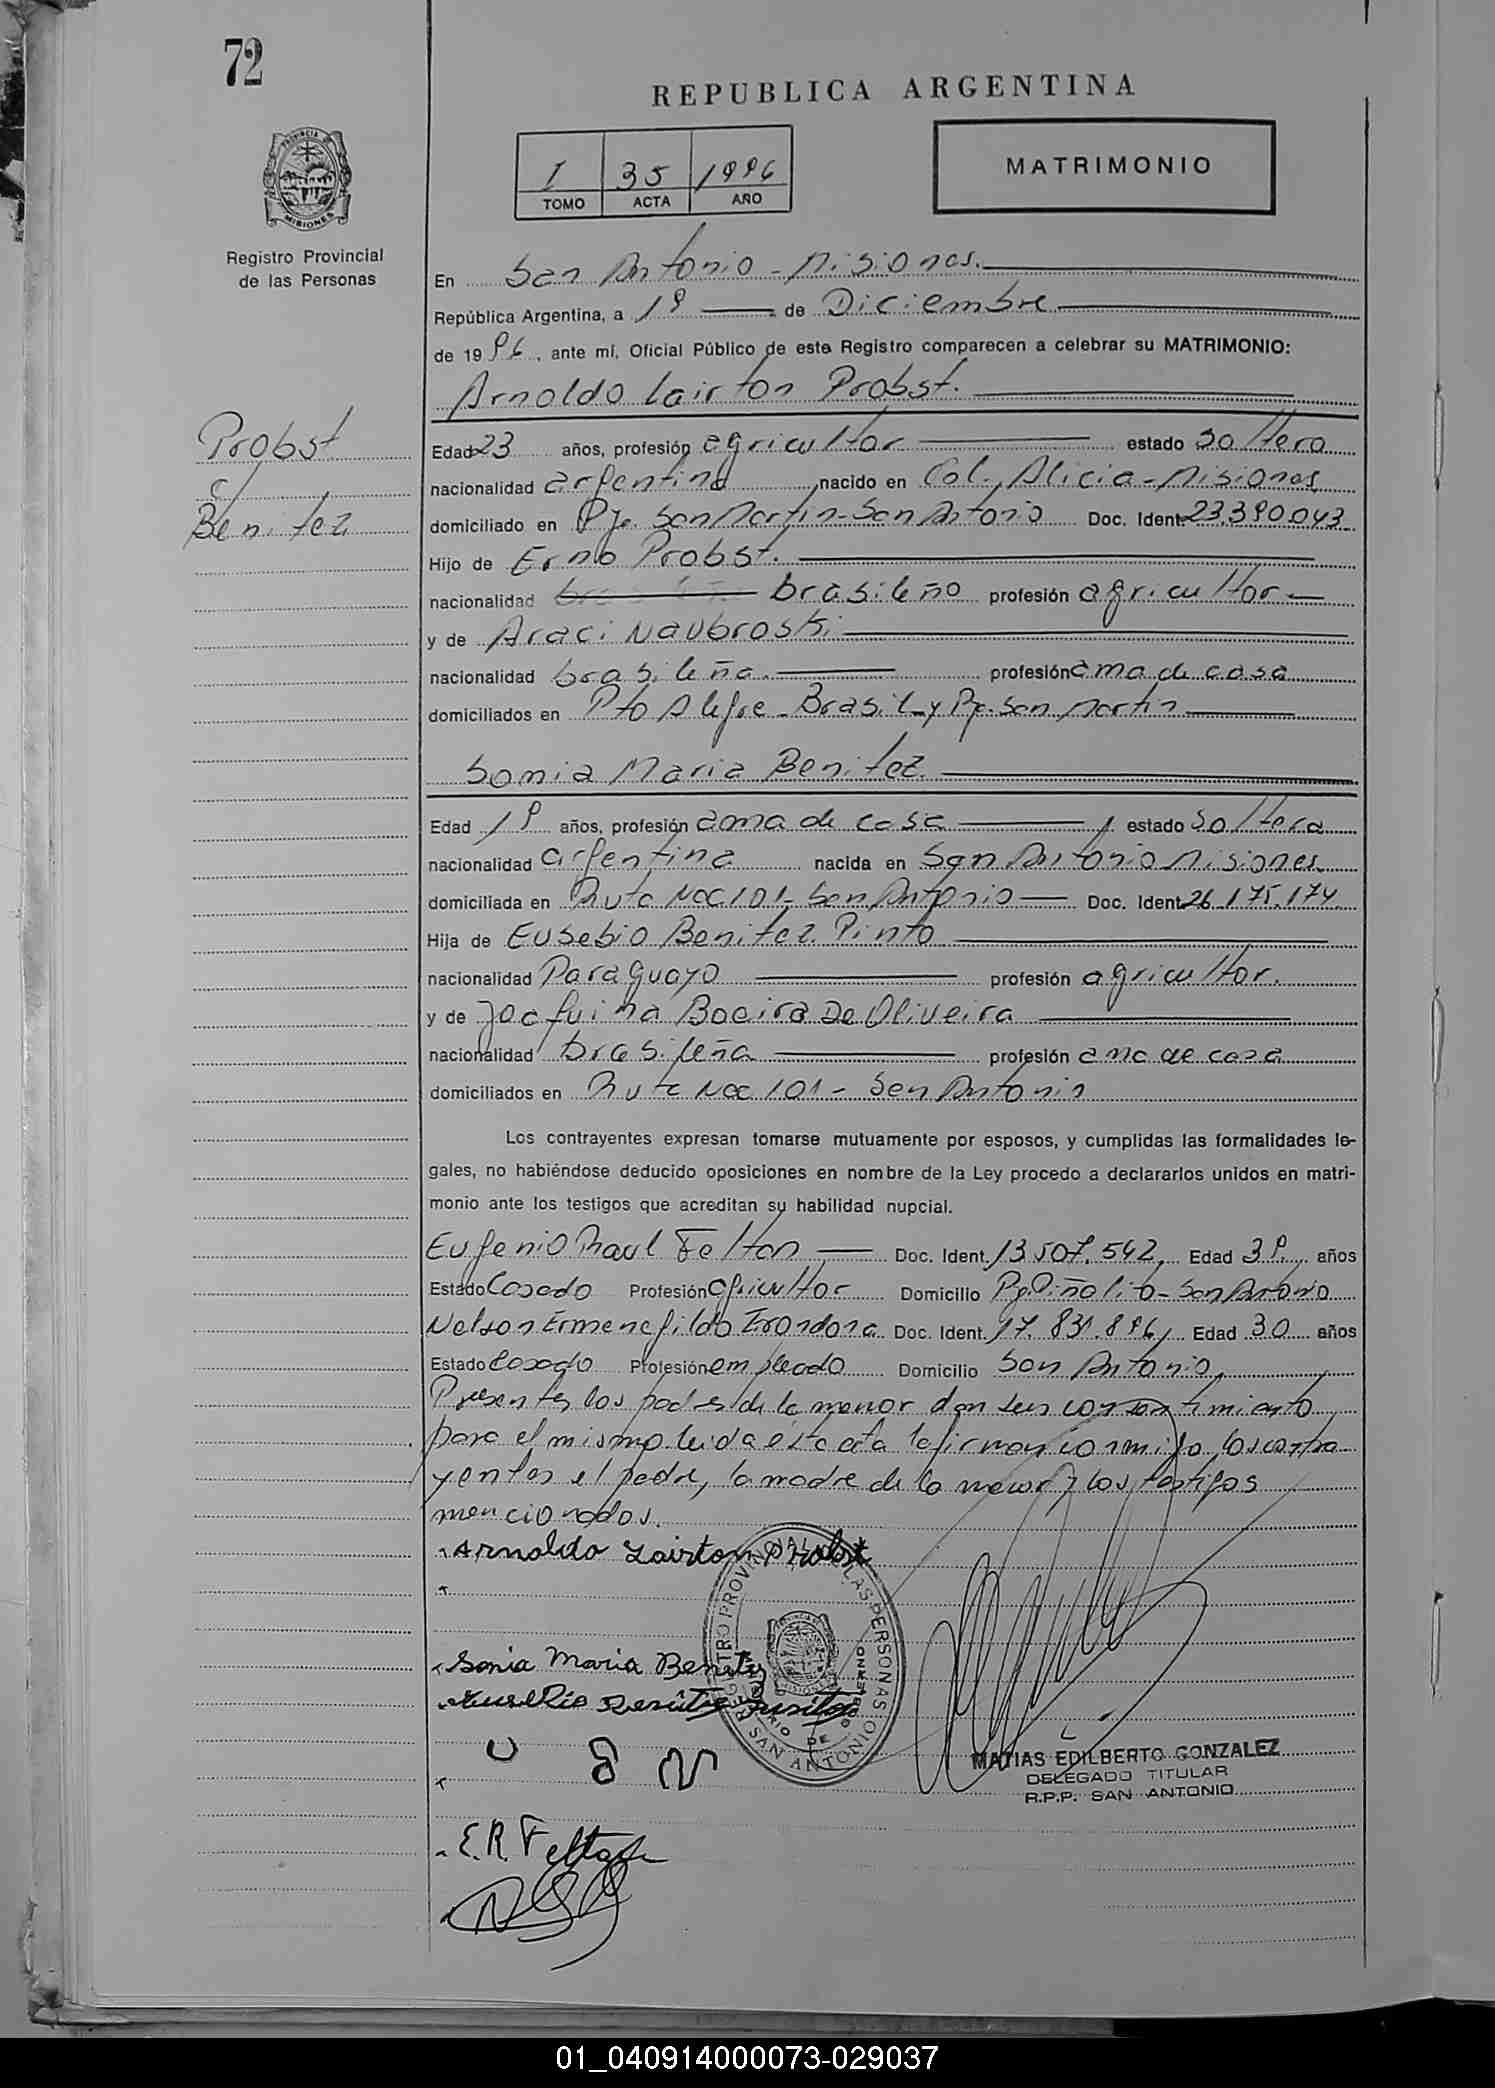 72
REPUBLICA ARGENTINA
PROVINCIA DE MISIONES
Registro Provincial
de las Personas
I 35 1996
TOMO ACTA AÑO
MATRIMONIO
En San Antonio - Misiones.
República Argentina, a 19 de Diciembre
de 1996, ante mí, Oficial Público de este Registro comparecen a celebrar su MATRIMONIO:
Arnoldo Lairton Probst.
Probst
c/
Benitez
Edad 23 años, profesión agricultor estado soltero
nacionalidad argentina nacido en Col. Alicia - Misiones
domiciliado en Pje. San Martin - San Antonio Doc. Ident. 23.390.043
Hijo de Erno Probst.
nacionalidad brasileño profesión agricultor
y de Araci Naubroski
nacionalidad brasileña. profesión ama de casa
domiciliados en Pto Alegre - Brasil y Pje. San Martin
Sonia Maria Benitez.
Edad 19 años, profesión ama de casa estado soltera
nacionalidad argentina nacida en San Antonio Misiones
domiciliada en Ruta Nac. 101 - San Antonio Doc. Ident. 26.175.174
Hija de Eusebio Benitez Pinto
nacionalidad Paraguayo profesión agricultor.
y de Joaquina Boeira De Oliveira
nacionalidad brasileña profesión ama de casa
domiciliados en Ruta Nac. 101 - San Antonio
Los contrayentes expresan tomarse mutuamente por esposos, y cumplidas las formalidades le-
gales, no habiéndose deducido oposiciones en nombre de la Ley procedo a declararlos unidos en matri-
monio ante los testigos que acreditan su habilidad nupcial.
Eugenio Raul Felton Doc. Ident. 13.507.542, Edad 39 años
Estado Casado Profesión agricultor Domicilio Pje. Piñalito - San Antonio
Nelson Ermenegildo Doc. Ident. 17.831.896, Edad 30 años
Estado Casado Profesión empleado Domicilio San Antonio
Presentes los padres de la menor dan su consentimiento
para el mismo leida esta acta la firman conmigo, los contra
yentes el padre, la madre de la menor y los testigos
mencionados.
Arnoldo Lairton Probst
Sonia Maria Benitez
REGISTRO PROVINCIAL DE LAS PERSONAS
MINISTERIO DE GOBIERNO
SAN ANTONIO
MATIAS EDILBERTO GONZALEZ
DELEGADO TITULAR
R.P.P. SAN ANTONIO
E.R. Felton
01_040914000073-029037